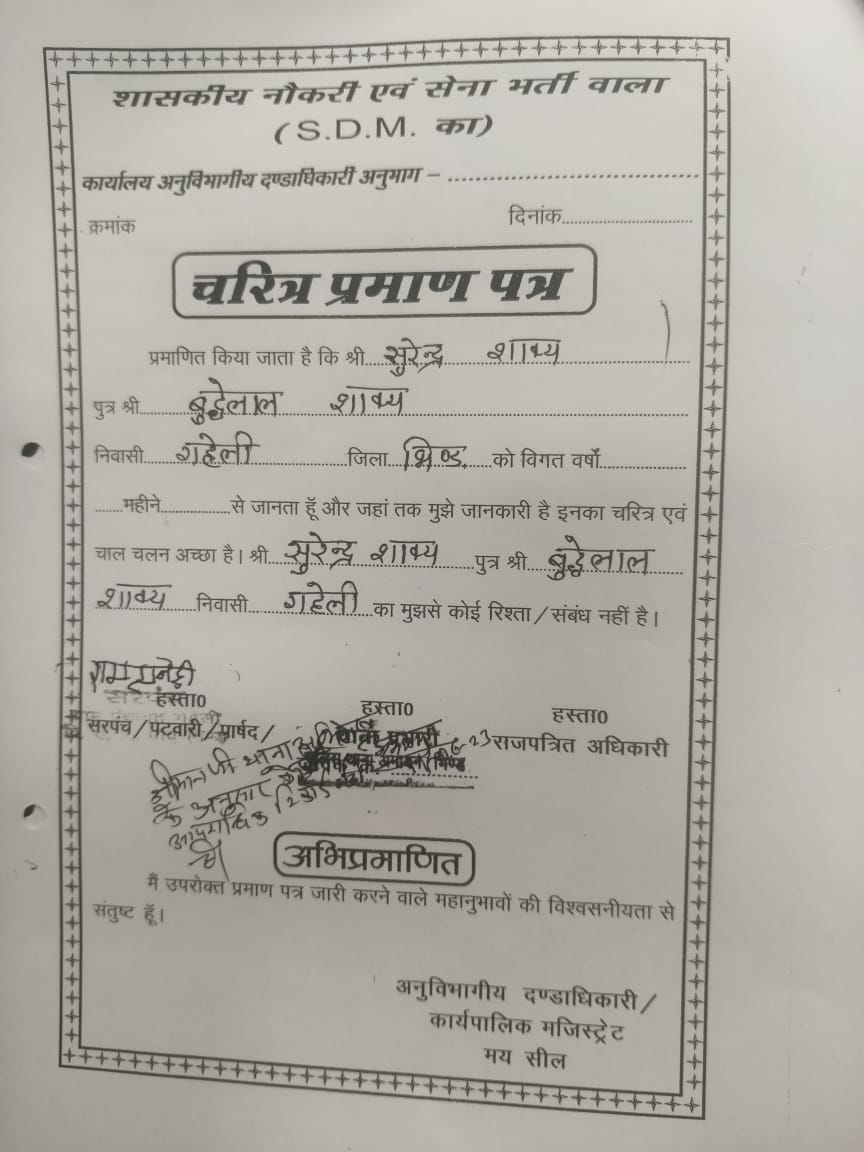 शासकीय नौकरी एवं सेना भर्ती वाला
(S.D.M. का)
कार्यालय अनुविभागीय दण्डाधिकारी अनुभाग – ........................................
क्रमांक दिनांक..............................
चरित्र प्रमाण पत्र
प्रमाणित किया जाता है कि श्री....सुरेन्द्र शाक्य
पुत्र श्री........बुद्धेलाल शाक्य
निवासी.....गहेली..............जिला...भिण्ड.....को विगत वर्षो...............
......महीने...............से जानता हूँ और जहां तक मुझे जानकारी है इनका चरित्र एवं
चाल चलन अच्छा है। श्री...सुरेन्द्र शाक्य.....पुत्र श्री....बुद्धेलाल
शाक्य.....निवासी.....गहेली....का मुझसे कोई रिश्ता/संबंध नहीं है।
हस्ता0 हस्ता0 हस्ता0
सरपंच/पटवारी/पार्षद/ राजपत्रित अधिकारी
श्रीमान जी थाना
के अनुसार
अभिप्रमाणित
मैं उपरोक्त प्रमाण पत्र जारी करने वाले महानुभावों की विश्वसनीयता से
संतुष्ट हूँ।
अनुविभागीय दण्डाधिकारी/
कार्यपालिक मजिस्ट्रेट
मय सील